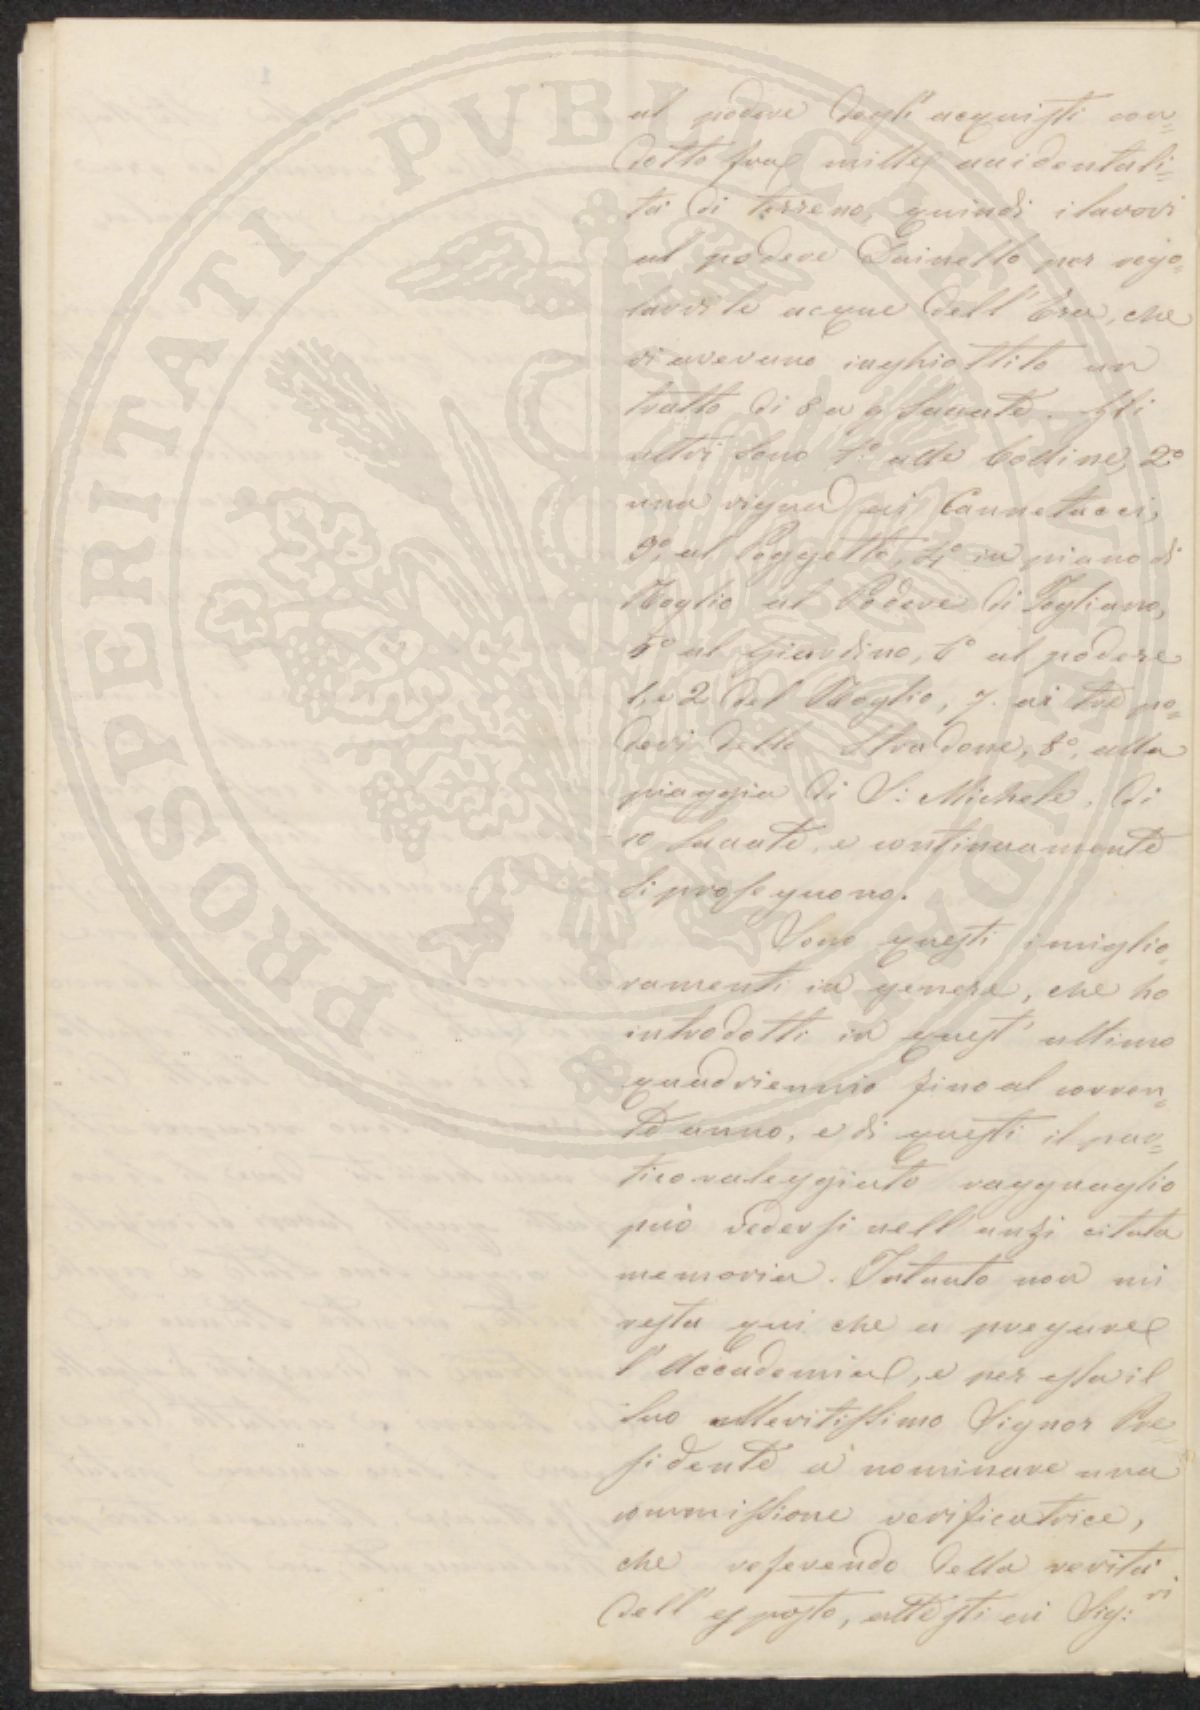 PROSPERITATI PVBLICAE AVGENDAE
al podere degli acquisti con=
dotto fra mille accidentali=
tà di terreno, quindi i lavori
al podere Luinello per rego=
larvi le acque dell'Era, che
vi avevano inghiottito un
tratto di 8 a 9 saccate. Gli
altri sono 1.º alle Colline, 2.º
una vigna ai Cannetacci,
3º, al Poggetto, 4º in piano di
Roglio al Podere di Togliano,
5º al Giardino, 6º al podere
1, e 2 del Roglio, 7. ai tre po=
deri dello Stradone, 8º, alla
piaggia di S: Michele, di
10 saccate, e continuamente
si proseguono.
Sono questi i miglio=
ramenti in genere, che ho
introdotti in quest' ultimo
quadriennio fino al corren=
te anno, e di questi il par=
ticolareggiato ragguaglio
può vedersi nell'anzi citata
memoria. Intanto non mi
resta qui che a pregare
l'Accademia, e per essa il
suo Meritissimo Signor Pre=
sidente a nominare una
commissione verificatrice,
che referendo della verità
dell'esposto, attesti ai Sig:ri